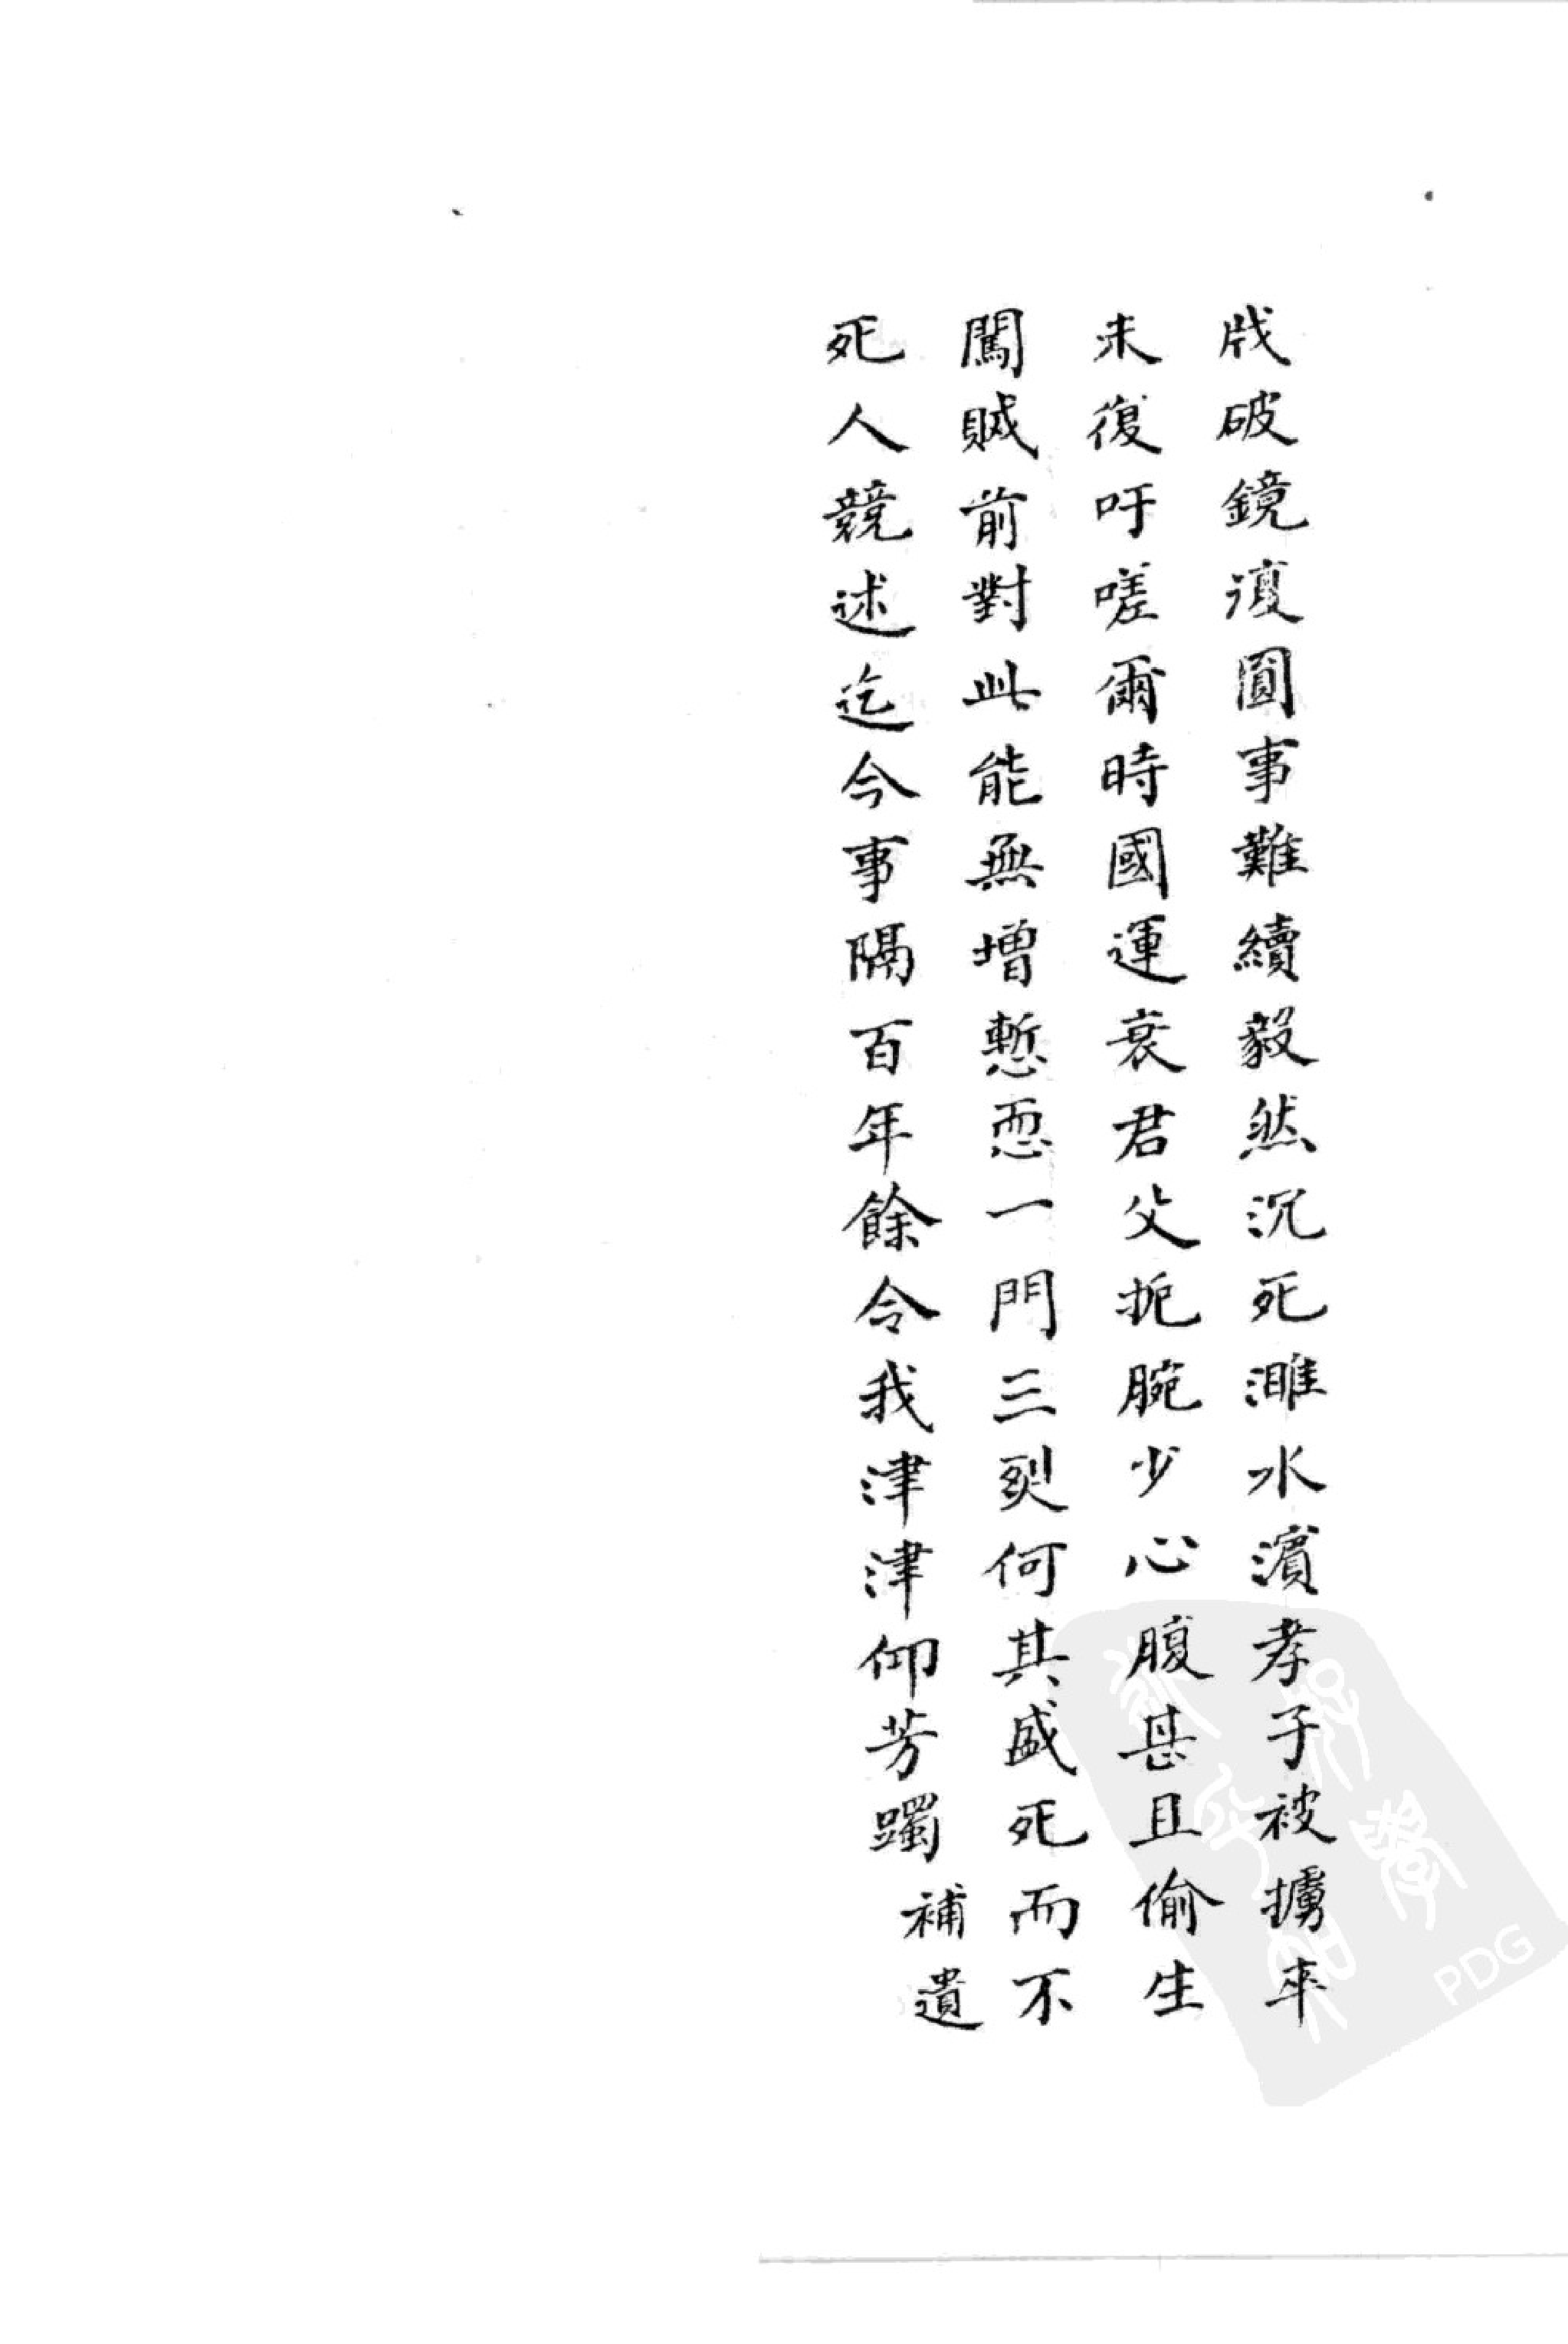 戕破鏡復圓事難續毅然沉死濉水濱孝子被擄卒
未復吁嗟爾時國運衰君父扼腕少心腹甚且偷生
闖賊前對此能無增慙恧一門三烈何其盛死而不
死人競述迄今事隔百年餘令我津津仰芳躅
補遺
PDG